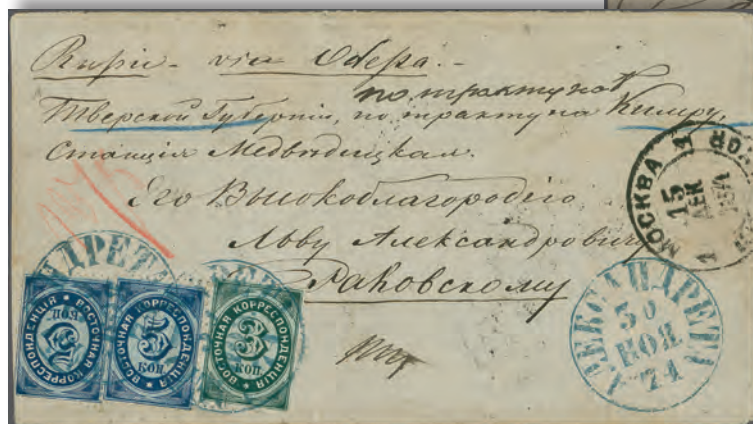 Russie - via Odessa. -
по тракту на
Тверской Губерніи, по тракту на Кимру,
Станція Медвѣдицкая.
Его Высокоблагородію
Льву Александровичу
Раковскому
МОСКВА
15
ДЕК
1871
АЛЕКСАНДРЕТА
30
НОЯ
71
ВОСТОЧНАЯ КОРРЕСПОНДЕНЦІЯ
5 КОП
ВОСТОЧНАЯ КОРРЕСПОНДЕНЦІЯ
5 КОП
ВОСТОЧНАЯ КОРРЕСПОНДЕНЦІЯ
3 КОП